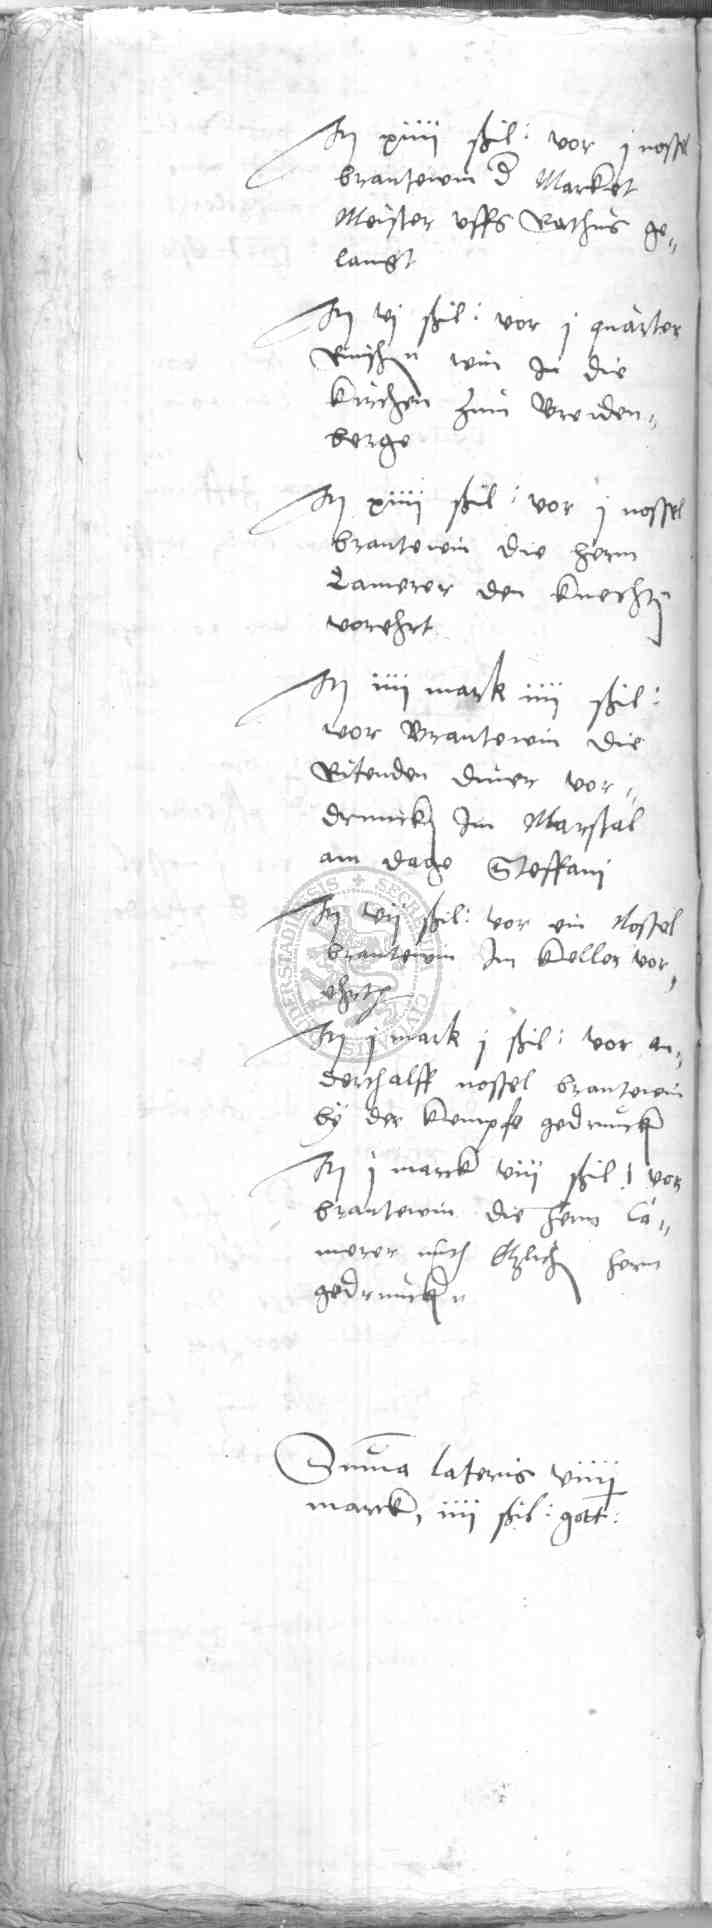 It xiiii ßil: vor j nossel
brantewin d Marcket
Meister vffs Rathus ge„
langt
It vj ßil: vor j quarter
Rinschen win In die
Kirchen zum Breiden„
berge
It xiiii ßil: vor j nossel
brantewin die hern
Camerer den Knechten
vorehrt
It iiii mark iiii ßil:
vor Brantewin die
Ritenden diner vor„
druncken Im Marstal
am dage Steffani
It vij ßil: vor ein Nossel
brantewin Im Keller vor„
ehrth
It j mark j ßil: vor an„
derthalff nossel brantewin
by der Kempfe gedruncken
It j marck viii ßil: vor
brantewin die hern Ca„
merer mith hern
gedruncken
Summa lateris viiii
marck, iiii ßil: gott:
SECRETUM CIVITATIS DUDERSTADIENSIS